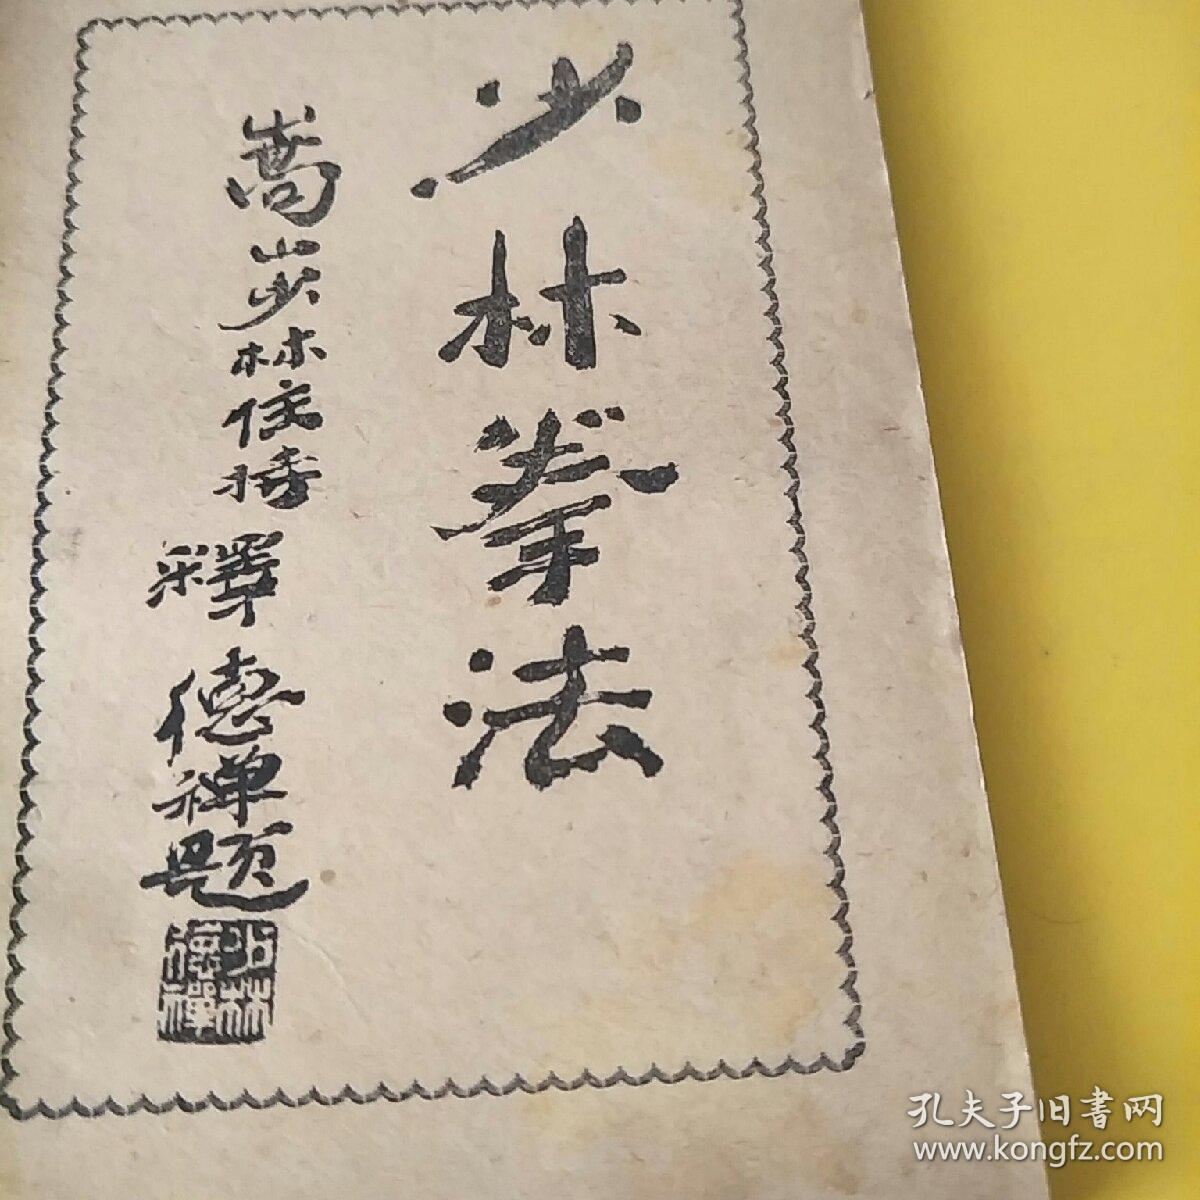 少林拳法
嵩山少林住持
釋德禅题
少林
德禪
孔夫子旧書网
www.kongfz.com